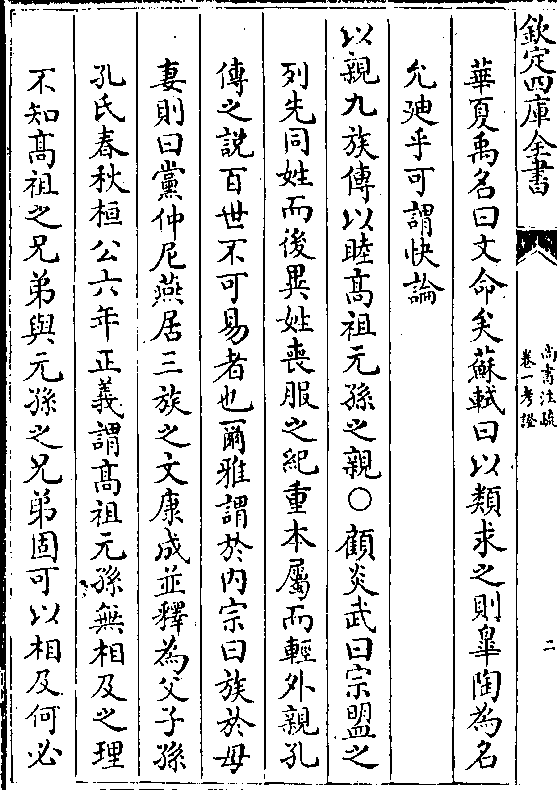 欽定四庫全書
尚書注疏
卷一考證
二
華夏禹名曰文命矣蘇軾曰以類求之則臯陶為名
允廸乎可謂快論
以親九族傳以睦髙祖元孫之親○顧炎武曰宗盟之
列先同姓而後異姓喪服之紀重本屬而輕外親孔
傳之說百世不可易者也爾雅謂於内宗曰族於母
妻則曰黨仲尼燕居三族之文康成並釋為父子孫
孔氏春秋桓公六年正義謂髙祖元孫無相及之理
不知髙祖之兄弟與元孫之兄弟固可以相及何必